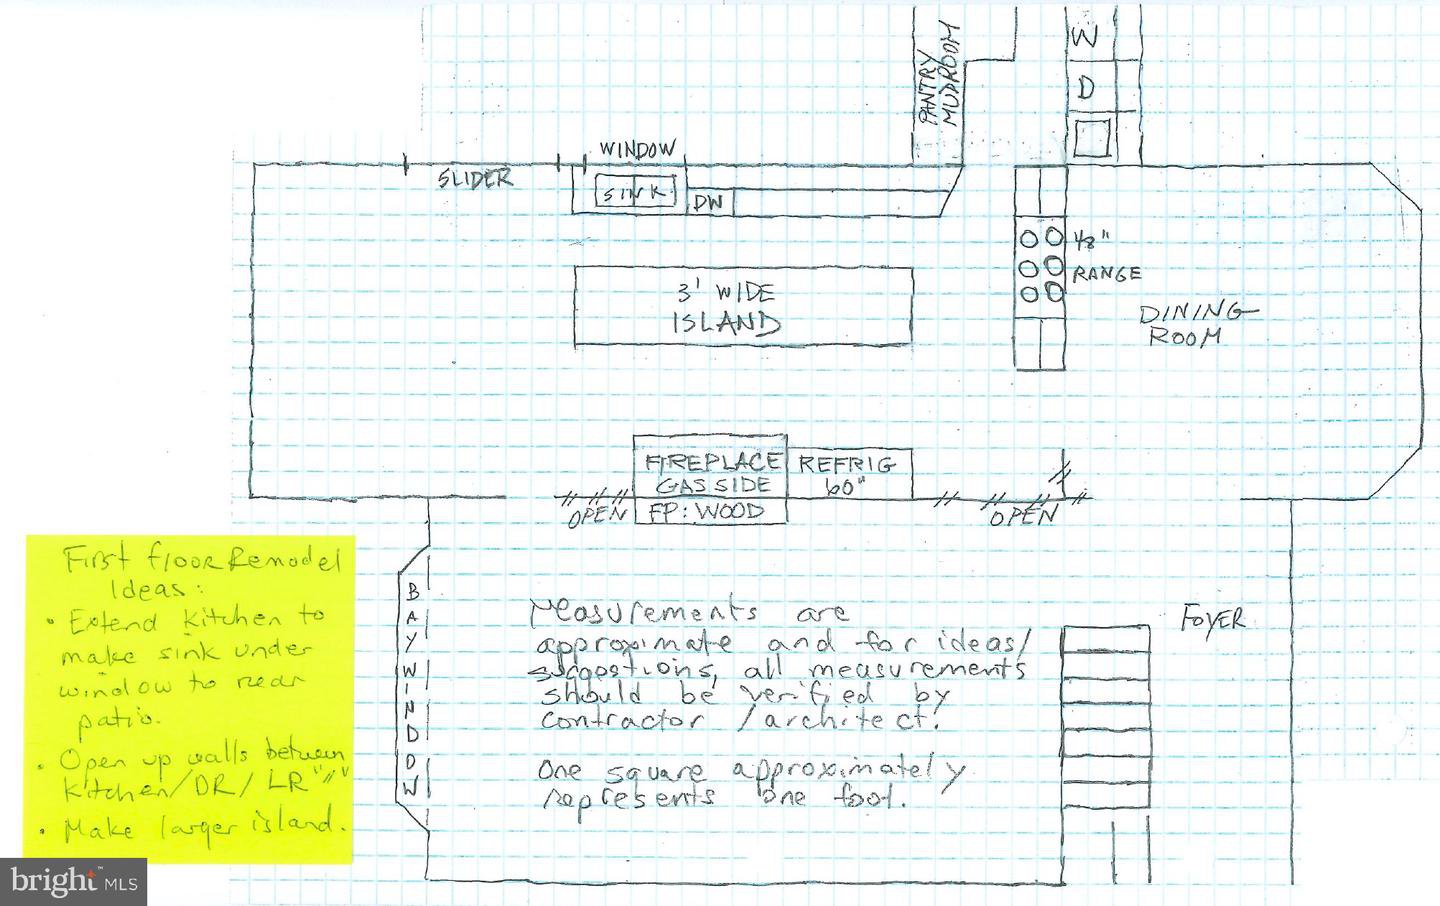 PANTRY
MUDROOM
W
D
WINDOW
SLIDER
SINK
DW
48"
RANGE
3' WIDE
ISLAND
DINING
ROOM
FIREPLACE
GAS SIDE
REFRIG
60"
OPEN
FP: WOOD
OPEN
First floor Remodel
Ideas:
• Extend kitchen to
make sink under
window to rear
patio.
• Open up walls between
kitchen/DR/LR "//"
• Make larger island.
BAY WINDOW
Measurements are
approximate and for ideas/
suggestions, all measurements
should be verified by
contractor /architect.
One square approximately
represents one foot.
FOYER
bright MLS